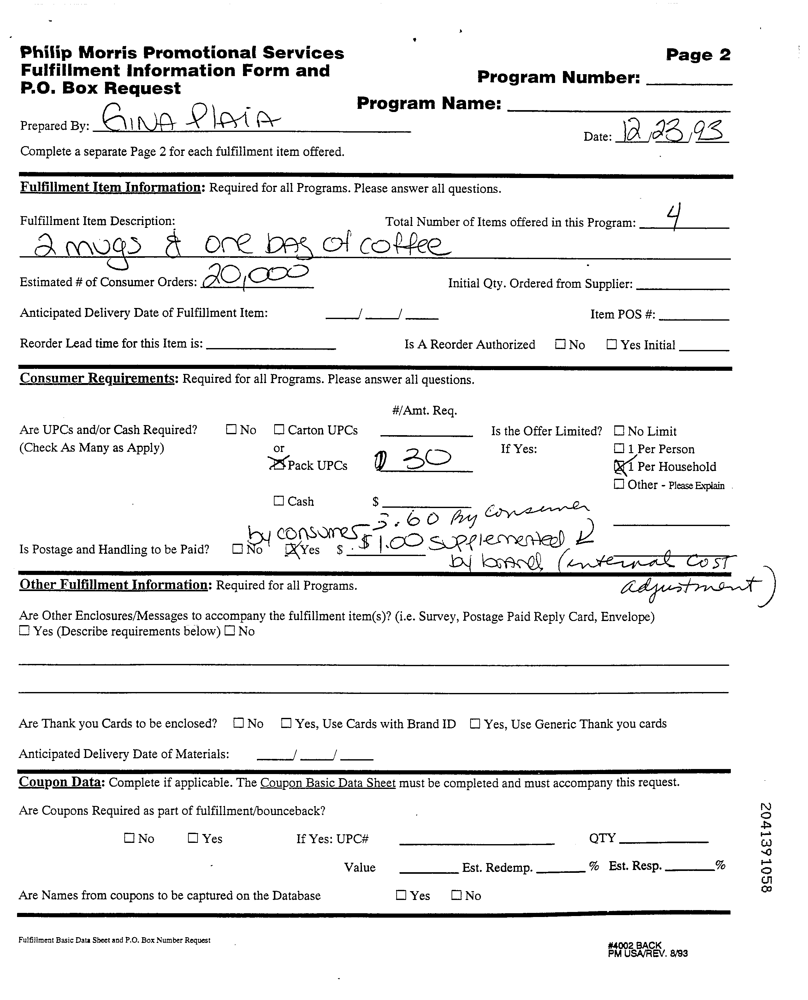 Philip Morris Promotional Services Page 2
Fulfillment Information Form and
P.O. Box Request Program Number: ________
Program Name: ________
Prepared By: GINA PLAIA Date: 12/23/93
Complete a separate Page 2 for each fulfillment item offered.
Fulfillment Item Information: Required for all Programs. Please answer all questions.
Fulfillment Item Description: Total Number of Items offered in this Program: 4
2 mugs & one bag of coffee
Estimated # of Consumer Orders: 20,000 Initial Qty. Ordered from Supplier: ________
Anticipated Delivery Date of Fulfillment Item: ____/____/____ Item POS #: ________
Reorder Lead time for this Item is: ________ Is A Reorder Authorized ☐ No ☐ Yes Initial ________
Consumer Requirements: Required for all Programs. Please answer all questions.
#/Amt. Req.
Are UPCs and/or Cash Required? ☐ No ☐ Carton UPCs ________ Is the Offer Limited? ☐ No Limit
(Check As Many as Apply) or If Yes: ☐ 1 Per Person
☒ Pack UPCs 30 ☒ 1 Per Household
☐ Other - Please Explain
☐ Cash $ ________
3.60 by consumer
by consumer $1.00 supplemented
Is Postage and Handling to be Paid? ☐ No ☒ Yes $ ________
by brand (internal cost
adjustment)
Other Fulfillment Information: Required for all Programs.
Are Other Enclosures/Messages to accompany the fulfillment item(s)? (i.e. Survey, Postage Paid Reply Card, Envelope)
☐ Yes (Describe requirements below) ☐ No
Are Thank you Cards to be enclosed? ☐ No ☐ Yes, Use Cards with Brand ID ☐ Yes, Use Generic Thank you cards
Anticipated Delivery Date of Materials: ____/____/____
Coupon Data: Complete if applicable. The Coupon Basic Data Sheet must be completed and must accompany this request.
Are Coupons Required as part of fulfillment/bounceback?
☐ No ☐ Yes If Yes: UPC# ________ QTY ________
Value ________ Est. Redemp. ________ % Est. Resp. ________ %
Are Names from coupons to be captured on the Database ☐ Yes ☐ No
Fulfillment Basic Data Sheet and P.O. Box Number Request
#4002 BACK
PM USA/REV. 8/93
2041391058